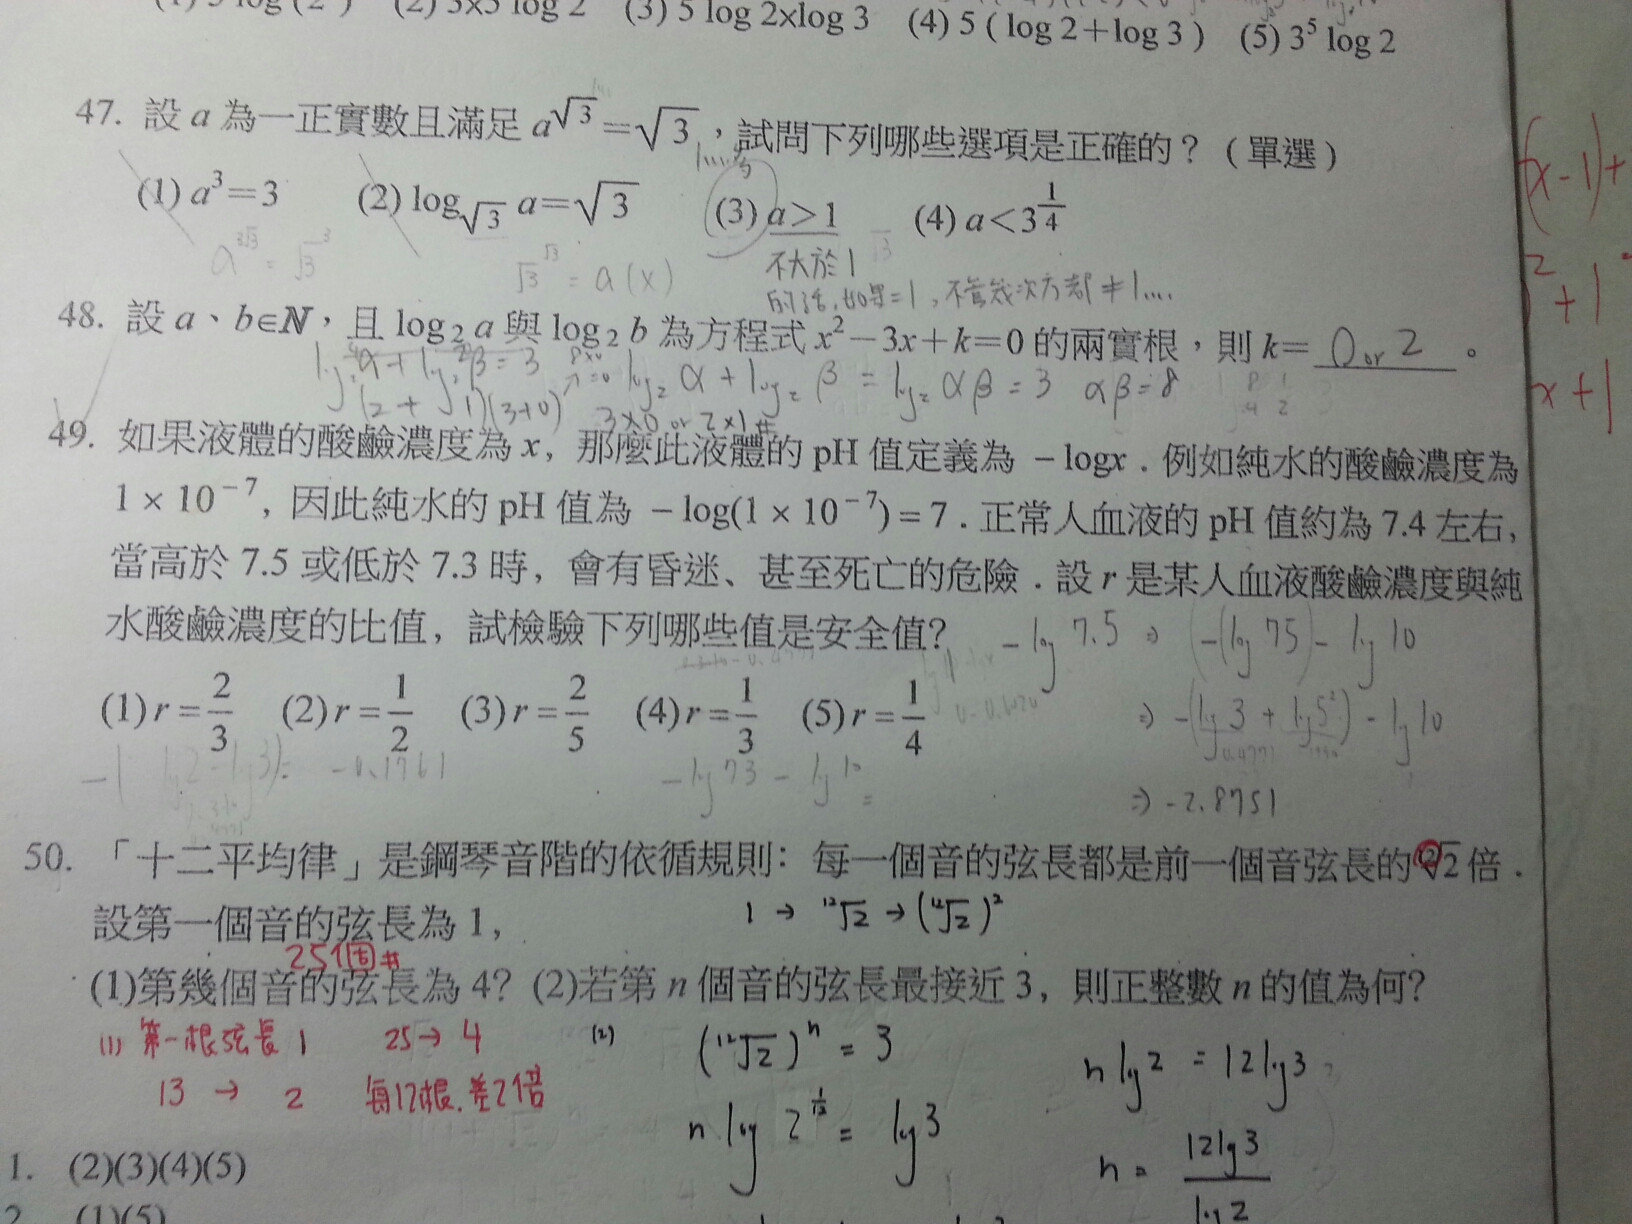 log 2 (3) 5 log 2xlog 3 (4) 5 ( log 2+log 3 ) (5) 3⁵ log 2
47. 設 a 為一正實數且滿足 a^√3=√3，試問下列哪些選項是正確的？（單選）
(1) a³=3 (2) log_√3 a=√3 (3) a>1 (4) a<3^(1/4)
a^3√3 = √3³ √3^√3 = a (x) 不大於1
的話，如果=1，不管幾次方都≠1....
48. 設 a、b∈N，且 log₂ a 與 log₂ b 為方程式 x²−3x+k=0 的兩實根，則 k= 0 or 2 。
log₂ α + log₂ β = 3 log₂ α + log₂ β = log₂ αβ = 3 αβ = 8
(2+1)(3+0) 3×0 or 2×1 #
49. 如果液體的酸鹼濃度為 x，那麼此液體的 pH 值定義為 −logx．例如純水的酸鹼濃度為
1 × 10⁻⁷，因此純水的 pH 值為 −log(1 × 10⁻⁷)=7．正常人血液的 pH 值約為 7.4 左右，
當高於 7.5 或低於 7.3 時，會有昏迷、甚至死亡的危險．設 r 是某人血液酸鹼濃度與純
水酸鹼濃度的比值，試檢驗下列哪些值是安全值？
−log 7.5 ⇒ −(log 75) − log 10
(1) r=2/3 (2) r=1/2 (3) r=2/5 (4) r=1/3 (5) r=1/4
⇒ −(log 3 + log 5²) − log 10
−(log2−log3)= −0.1761 −log 73 − log 10 =
⇒ −2.8751
50. 「十二平均律」是鋼琴音階的依循規則：每一個音的弦長都是前一個音弦長的 ¹²√2 倍．
設第一個音的弦長為 1，
1 → ¹²√2 → (¹²√2)²
25個#
(1)第幾個音的弦長為 4？(2)若第 n 個音的弦長最接近 3，則正整數 n 的值為何？
(1) 第一根弦長 1 25→ 4
13 → 2 每12根，差2倍
(2) (¹²√2)ⁿ = 3 n log 2 = 12 log 3
n log 2^(1/12) = log 3 n = 12 log 3 / log 2
1. (2)(3)(4)(5)
2. (1)(5)
(x-1)+
²+1
x+1